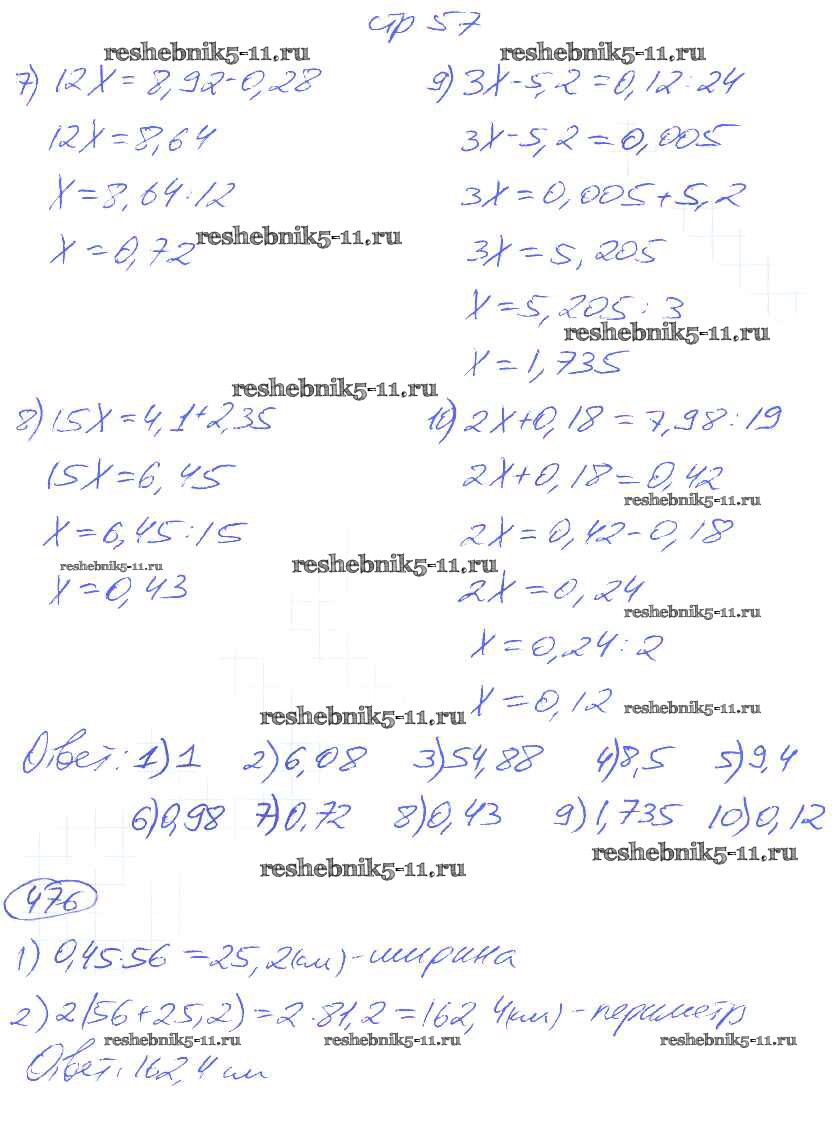 стр 57
reshebnik5-11.ru
reshebnik5-11.ru
7) 12X = 8,92-0,28
12X = 8,64
X = 8,64:12
X = 0,72
reshebnik5-11.ru
reshebnik5-11.ru
8) 15X = 4,1+2,35
15X = 6,45
X = 6,45:15
reshebnik5-11.ru
X = 0,43
reshebnik5-11.ru
9) 3X-5,2 = 0,12:24
3X-5,2 = 0,005
3X = 0,005+5,2
3X = 5,205
X = 5,205:3
reshebnik5-11.ru
X = 1,735
10) 2X+0,18 = 7,98:19
2X+0,18 = 0,42
reshebnik5-11.ru
2X = 0,42-0,18
2X = 0,24
reshebnik5-11.ru
X = 0,24:2
X = 0,12
reshebnik5-11.ru
reshebnik5-11.ru
Ответ: 1) 1 2) 6,08 3) 54,88 4) 8,5 5) 9,4
6) 0,98 7) 0,72 8) 0,43 9) 1,735 10) 0,12
reshebnik5-11.ru
reshebnik5-11.ru
476
1) 0,45·56 = 25,2 (см) - ширина
2) 2(56+25,2) = 2·81,2 = 162,4 (см) - периметр
reshebnik5-11.ru
reshebnik5-11.ru
reshebnik5-11.ru
Ответ: 162,4 см